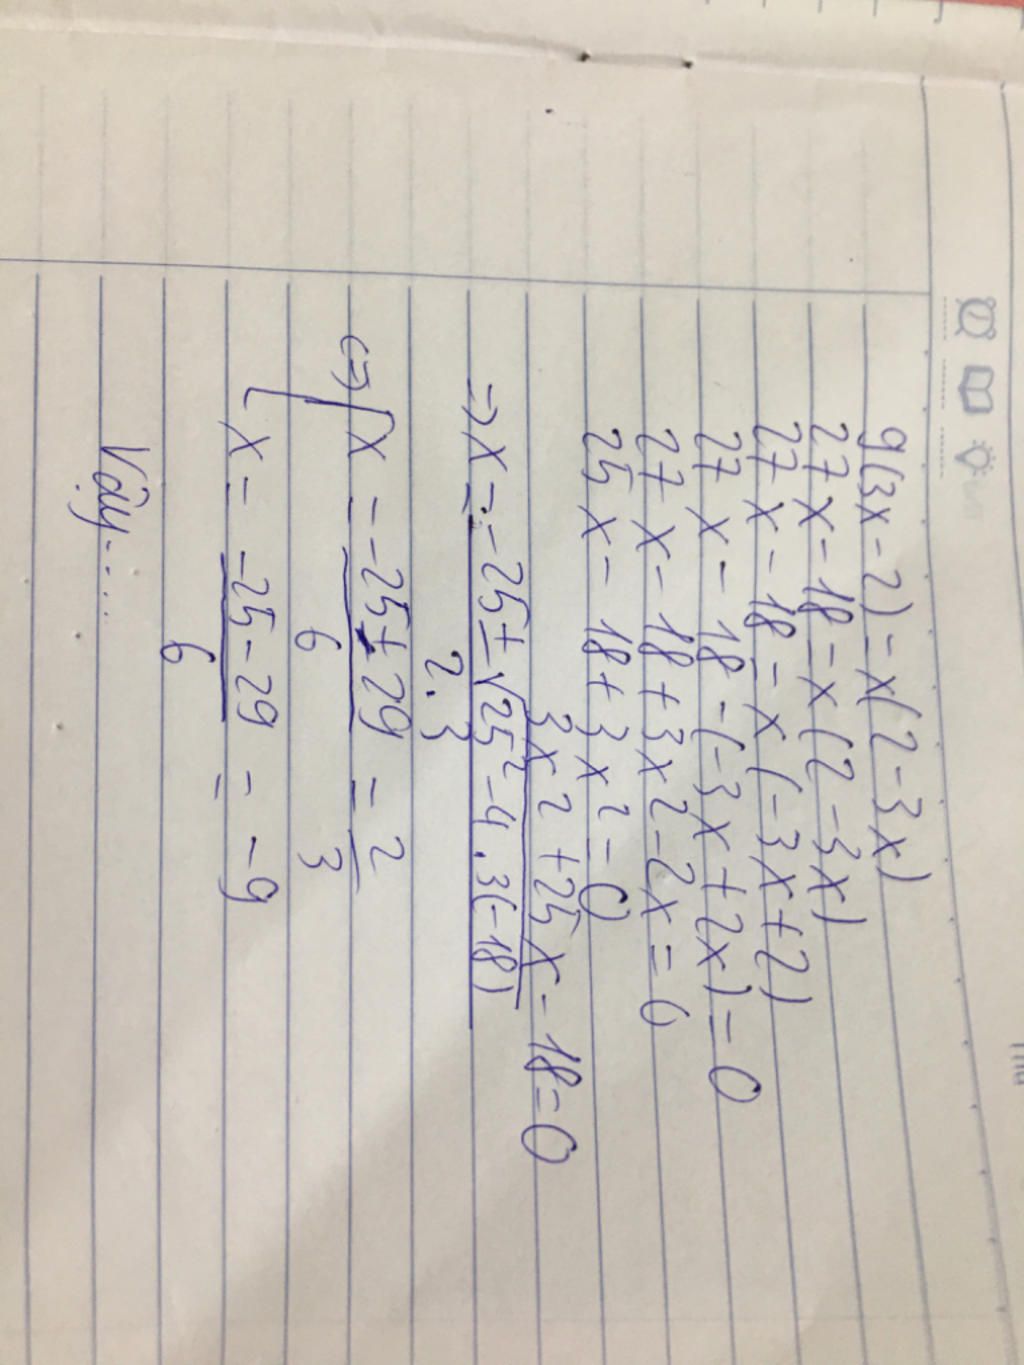 9(3x-2)=x(2-3x)
27x-18=x(2-3x)
27x-18=x(-3x+2)
27x-18-(-3x+2x)=0
27x-18+3x2-2x=0
25x-18+3x²=0
3x2+25x-18=0
=>x=-25±√25²-4.3(-18)
2.3
<=> [x=-25+29/6=2/3
x=-25-29/6=-9
Vậy....